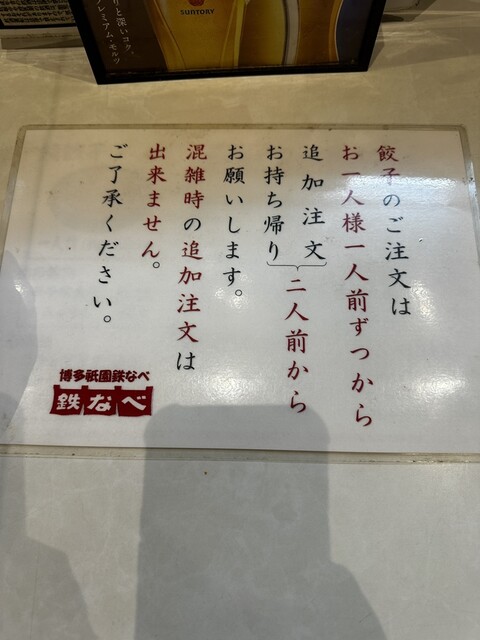 りと深いコク。
レミアム・モルツ
SUNTORY
餃子のご注文は
お一人様一人前ずつから
追加注文
お持ち帰り
二人前から
お願いします。
混雑時の追加注文は
出来ません。
ご了承ください。
博多祇園鉄なべ
鉄なべ